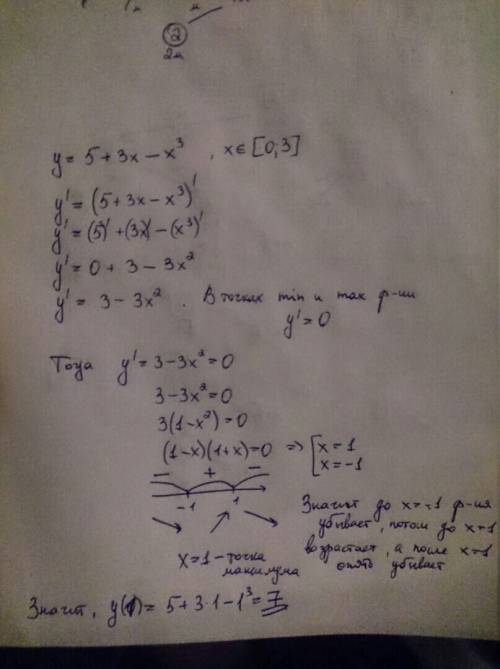 2
2м
y = 5 + 3x − x³ , x ∈ [0;3]
y' = (5 + 3x − x³)'
y' = (5)' + (3x)' − (x³)'
y' = 0 + 3 − 3x²
y' = 3 − 3x² . В точках min и max ф-ии
y' = 0
Тогда y' = 3 − 3x² = 0
3 − 3x² = 0
3(1 − x²) = 0
(1 − x)(1 + x) = 0 => [x = 1
x = −1
− + −
−1 1
Значит до x = −1 ф-ия
убывает, потом до x = 1
возрастает, а после x = 1
опять убывает
x = 1 − точка
максимума
Значит, y(1) = 5 + 3·1 − 1³ = 7